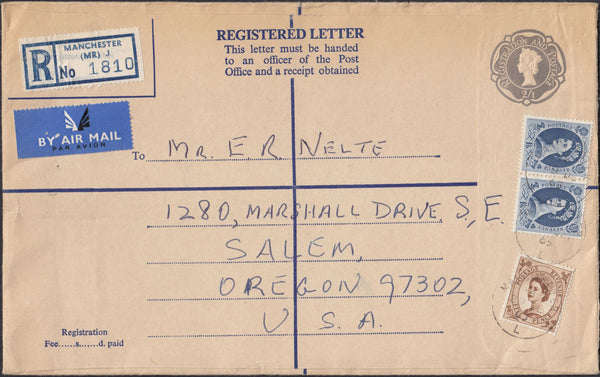 REGISTERED LETTER
This letter must be handed
to an officer of the Post
Office and a receipt obtained
MANCHESTER
(MR) J
R No 1810
BY AIR MAIL
PAR AVION
REGISTRATION AND POSTAGE
To MR. E. R. NELTE
1280, MARSHALL DRIVE S,E.
SALEM,
OREGON 97302,
U.S.A.
Registration
Fee......s......d. paid
POSTAGE
POSTAGE
65
L
L